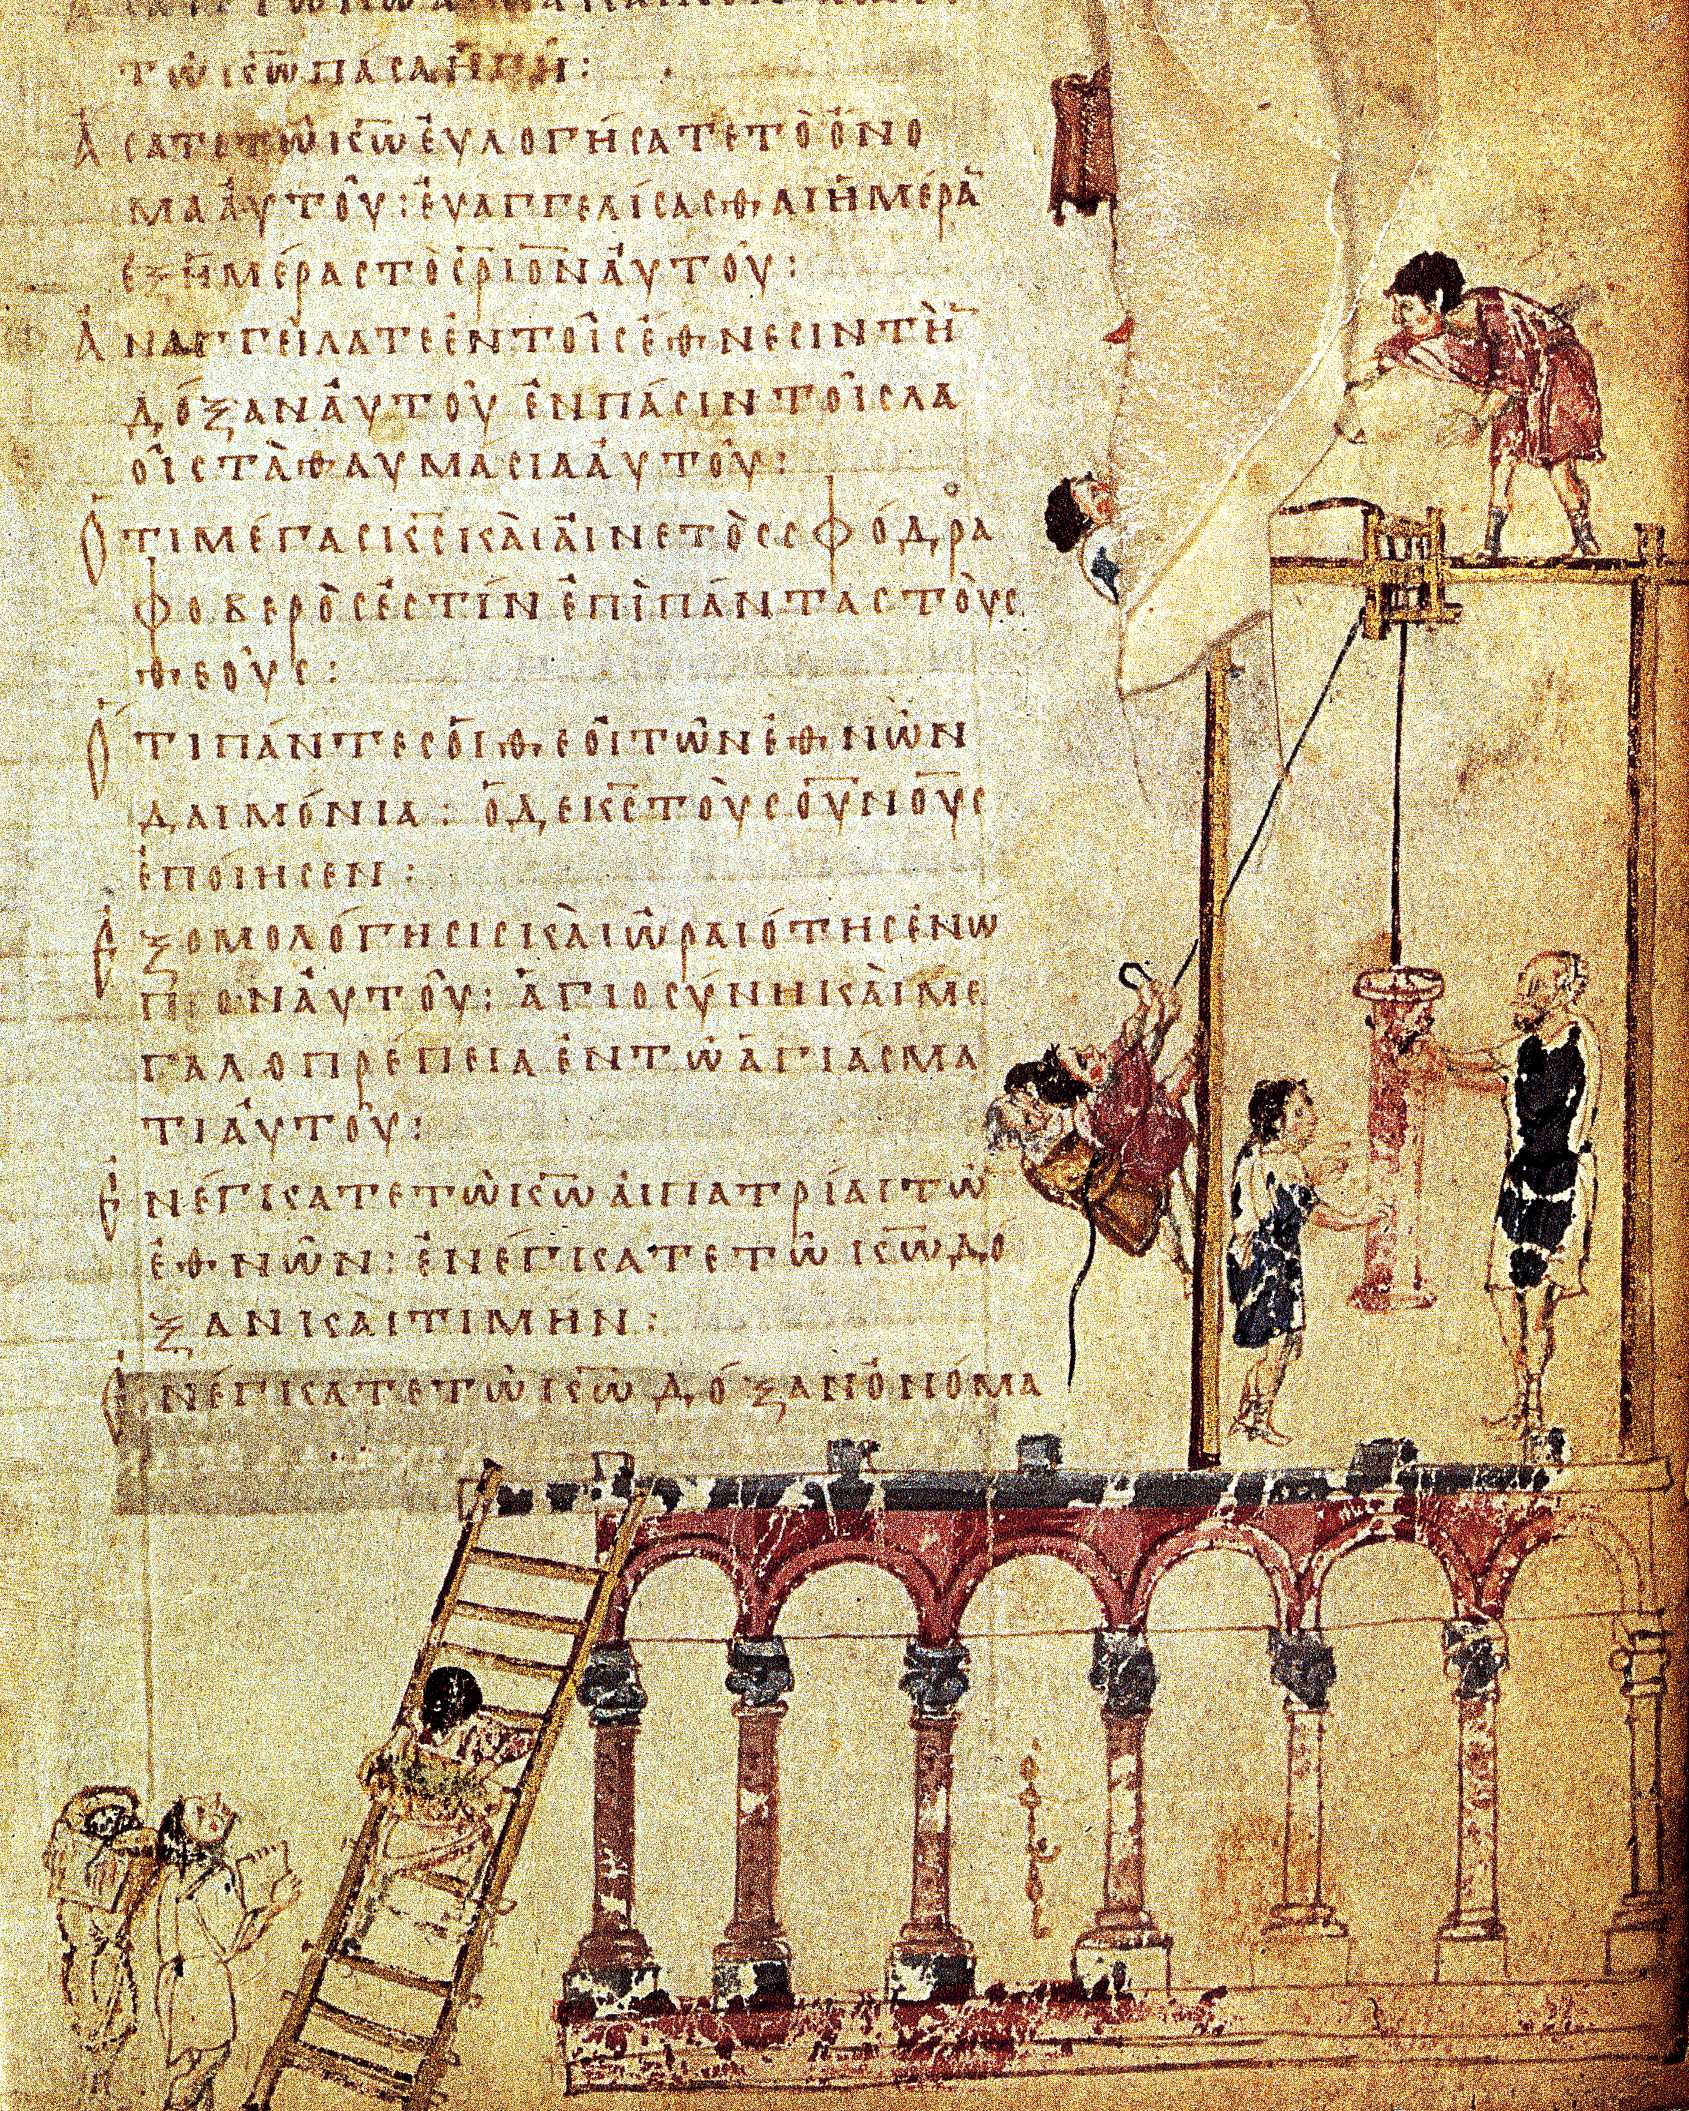 τῶ κ͞ω πᾶσα ἡ γῆ:
ἄσατε τῶ κ͞ω ἐυλογήσατε τὸ ὄνο
μα ἀυτοῦ: ἐυαγγελίσασθαι ἡμέρᾱ
ἐξ ἡμέρας τὸ σ͞ριο͞ν ἀυτοῦ:
Ἀναγγείλατε ἐν τοῖς ἔθνεσιν τὴ̄
δόξαν ἀυτοῦ ἐν πᾶσιν τοῖς λα
οῖς τὰ θαυμάσια ἀυτοῦ:
Ὅτι μέγας κ͞ς κὰι ἀινετὸς σφόδρα
φοβερὸς ἐστὶν ἐπὶ πάντας τοὺς
θεούς:
Ὅτι πάντες ὁι θεοὶ τῶν ἐθνῶν
δαιμόνια: ὁ δε κ͞ς τοὺς ο͞υνο͞υς
ἐποίησεν:
Ἐξομολόγησις κὰι ὡραιότης ἐνώ
πιον ἀυτοῦ: ἁγιοσύνη κὰι με
γαλοπρέπεια ἐν τῶ ἁγιάσμα
τι ἀυτοῦ:
Ἐνέγκατε τῶ κ͞ω ἁι πατρίαι τῶ̄
ἐθνῶν: ἐνέγκατε τῶ κ͞ω δό
ξαν καὶ τιμήν:
Ἐνέγκατε τῶ κ͞ω δόξαν ὀνόμα